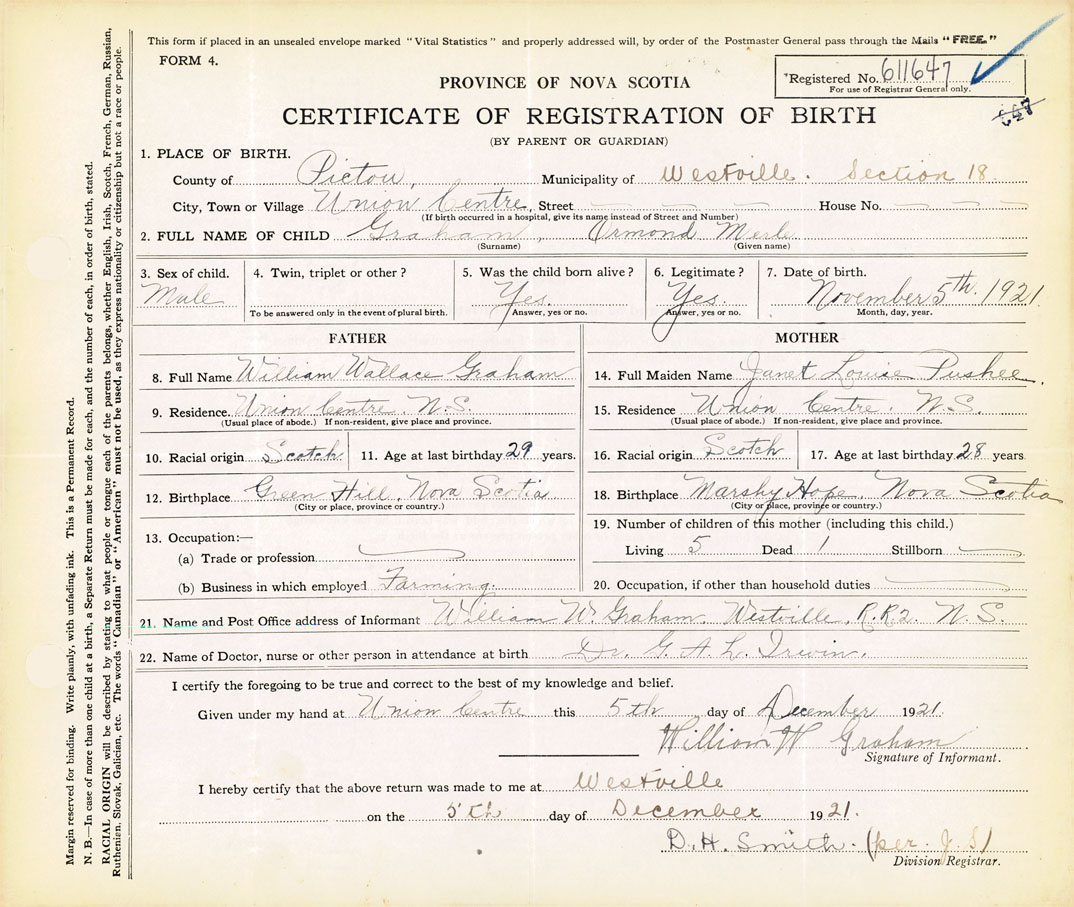 This form if placed in an unsealed envelope marked "Vital Statistics" and properly addressed will, by order of the Postmaster General pass through the Mails "FREE."
FORM 4.
PROVINCE OF NOVA SCOTIA
*Registered No. 611647
For use of Registrar General only.
647
CERTIFICATE OF REGISTRATION OF BIRTH
(BY PARENT OR GUARDIAN)
1. PLACE OF BIRTH.
County of Pictou, Municipality of Westville. Section 18
City, Town or Village Union Centre, Street House No.
(If birth occurred in a hospital, give its name instead of Street and Number)
2. FULL NAME OF CHILD Graham, Ormond Merle
(Surname) (Given name)
3. Sex of child. 4. Twin, triplet or other? 5. Was the child born alive? 6. Legitimate? 7. Date of birth.
Male Yes. Yes. November 5th. 1921
To be answered only in the event of plural birth. Answer, yes or no. Answer, yes or no. Month, day, year.
FATHER MOTHER
8. Full Name William Wallace Graham 14. Full Maiden Name Janet Louise Pushee.
9. Residence Union Centre. N.S. 15. Residence Union Centre. N.S.
(Usual place of abode.) If non-resident, give place and province. (Usual place of abode.) If non-resident, give place and province.
10. Racial origin Scotch 11. Age at last birthday 29 years. 16. Racial origin Scotch 17. Age at last birthday 28 years
12. Birthplace Green Hill, Nova Scotia 18. Birthplace Marshy Hope, Nova Scotia
(City or place, province or country.) (City or place, province or country.)
13. Occupation:— 19. Number of children of this mother (including this child.)
(a) Trade or profession Living 5 Dead 1 Stillborn
(b) Business in which employed Farming. 20. Occupation, if other than household duties
21. Name and Post Office address of Informant William W. Graham, Westville, R.R.2. N.S.
22. Name of Doctor, nurse or other person in attendance at birth Dr. G. A. L. Irwin.
I certify the foregoing to be true and correct to the best of my knowledge and belief.
Given under my hand at Union Centre this 5th day of December 1921.
William W Graham
Signature of Informant.
I hereby certify that the above return was made to me at Westville
on the 5th day of December 1921.
D. H. Smith. (per. J. S)
Division Registrar.
Margin reserved for binding. Write plainly, with unfading ink. This is a Permanent Record.
N. B.—In case of more than one child at a birth, a Separate Return must be made for each, and the number of each, in order of birth, stated.
RACIAL ORIGIN will be described by stating to what people or tongue each of the parents belongs, whether English, Irish, Scotch, French, German, Russian,
Ruthenian, Slovak, Galician, etc. The words "Canadian" or "American" must not be used, as they express nationality or citizenship but not a race or people.